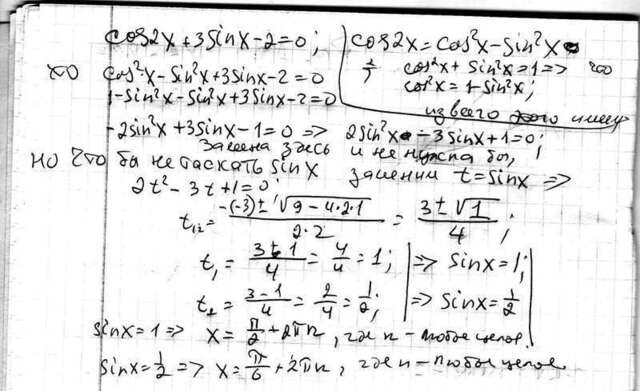 cos2x+3sinx-2=0; cos2x=cos²x-sin²x
cos²x-sin²x+3sinx-2=0 cos²x+sin²x=1=>
1-sin²x-sin²x+3sinx-2=0 cos²x=1-sin²x;
из всего этого имеем
-2sin²x+3sinx-1=0 => 2sin²x-3sinx+1=0;
Замена здесь и не нужна бы,
но что бы не таскать sinx заменим t=sinx =>
2t²-3t+1=0;
t₁,₂ = (-(-3)±√(9-4·2·1))/(2·2) = (3±√1)/4;
t₁ = (3+1)/4 = 4/4 = 1; => sinx=1;
t₂ = (3-1)/4 = 2/4 = 1/2; => sinx=1/2
sinx=1 => x=π/2+2πn, где n-любое целое.
sinx=1/2 => x=π/6+2πn, где n-любое целое.